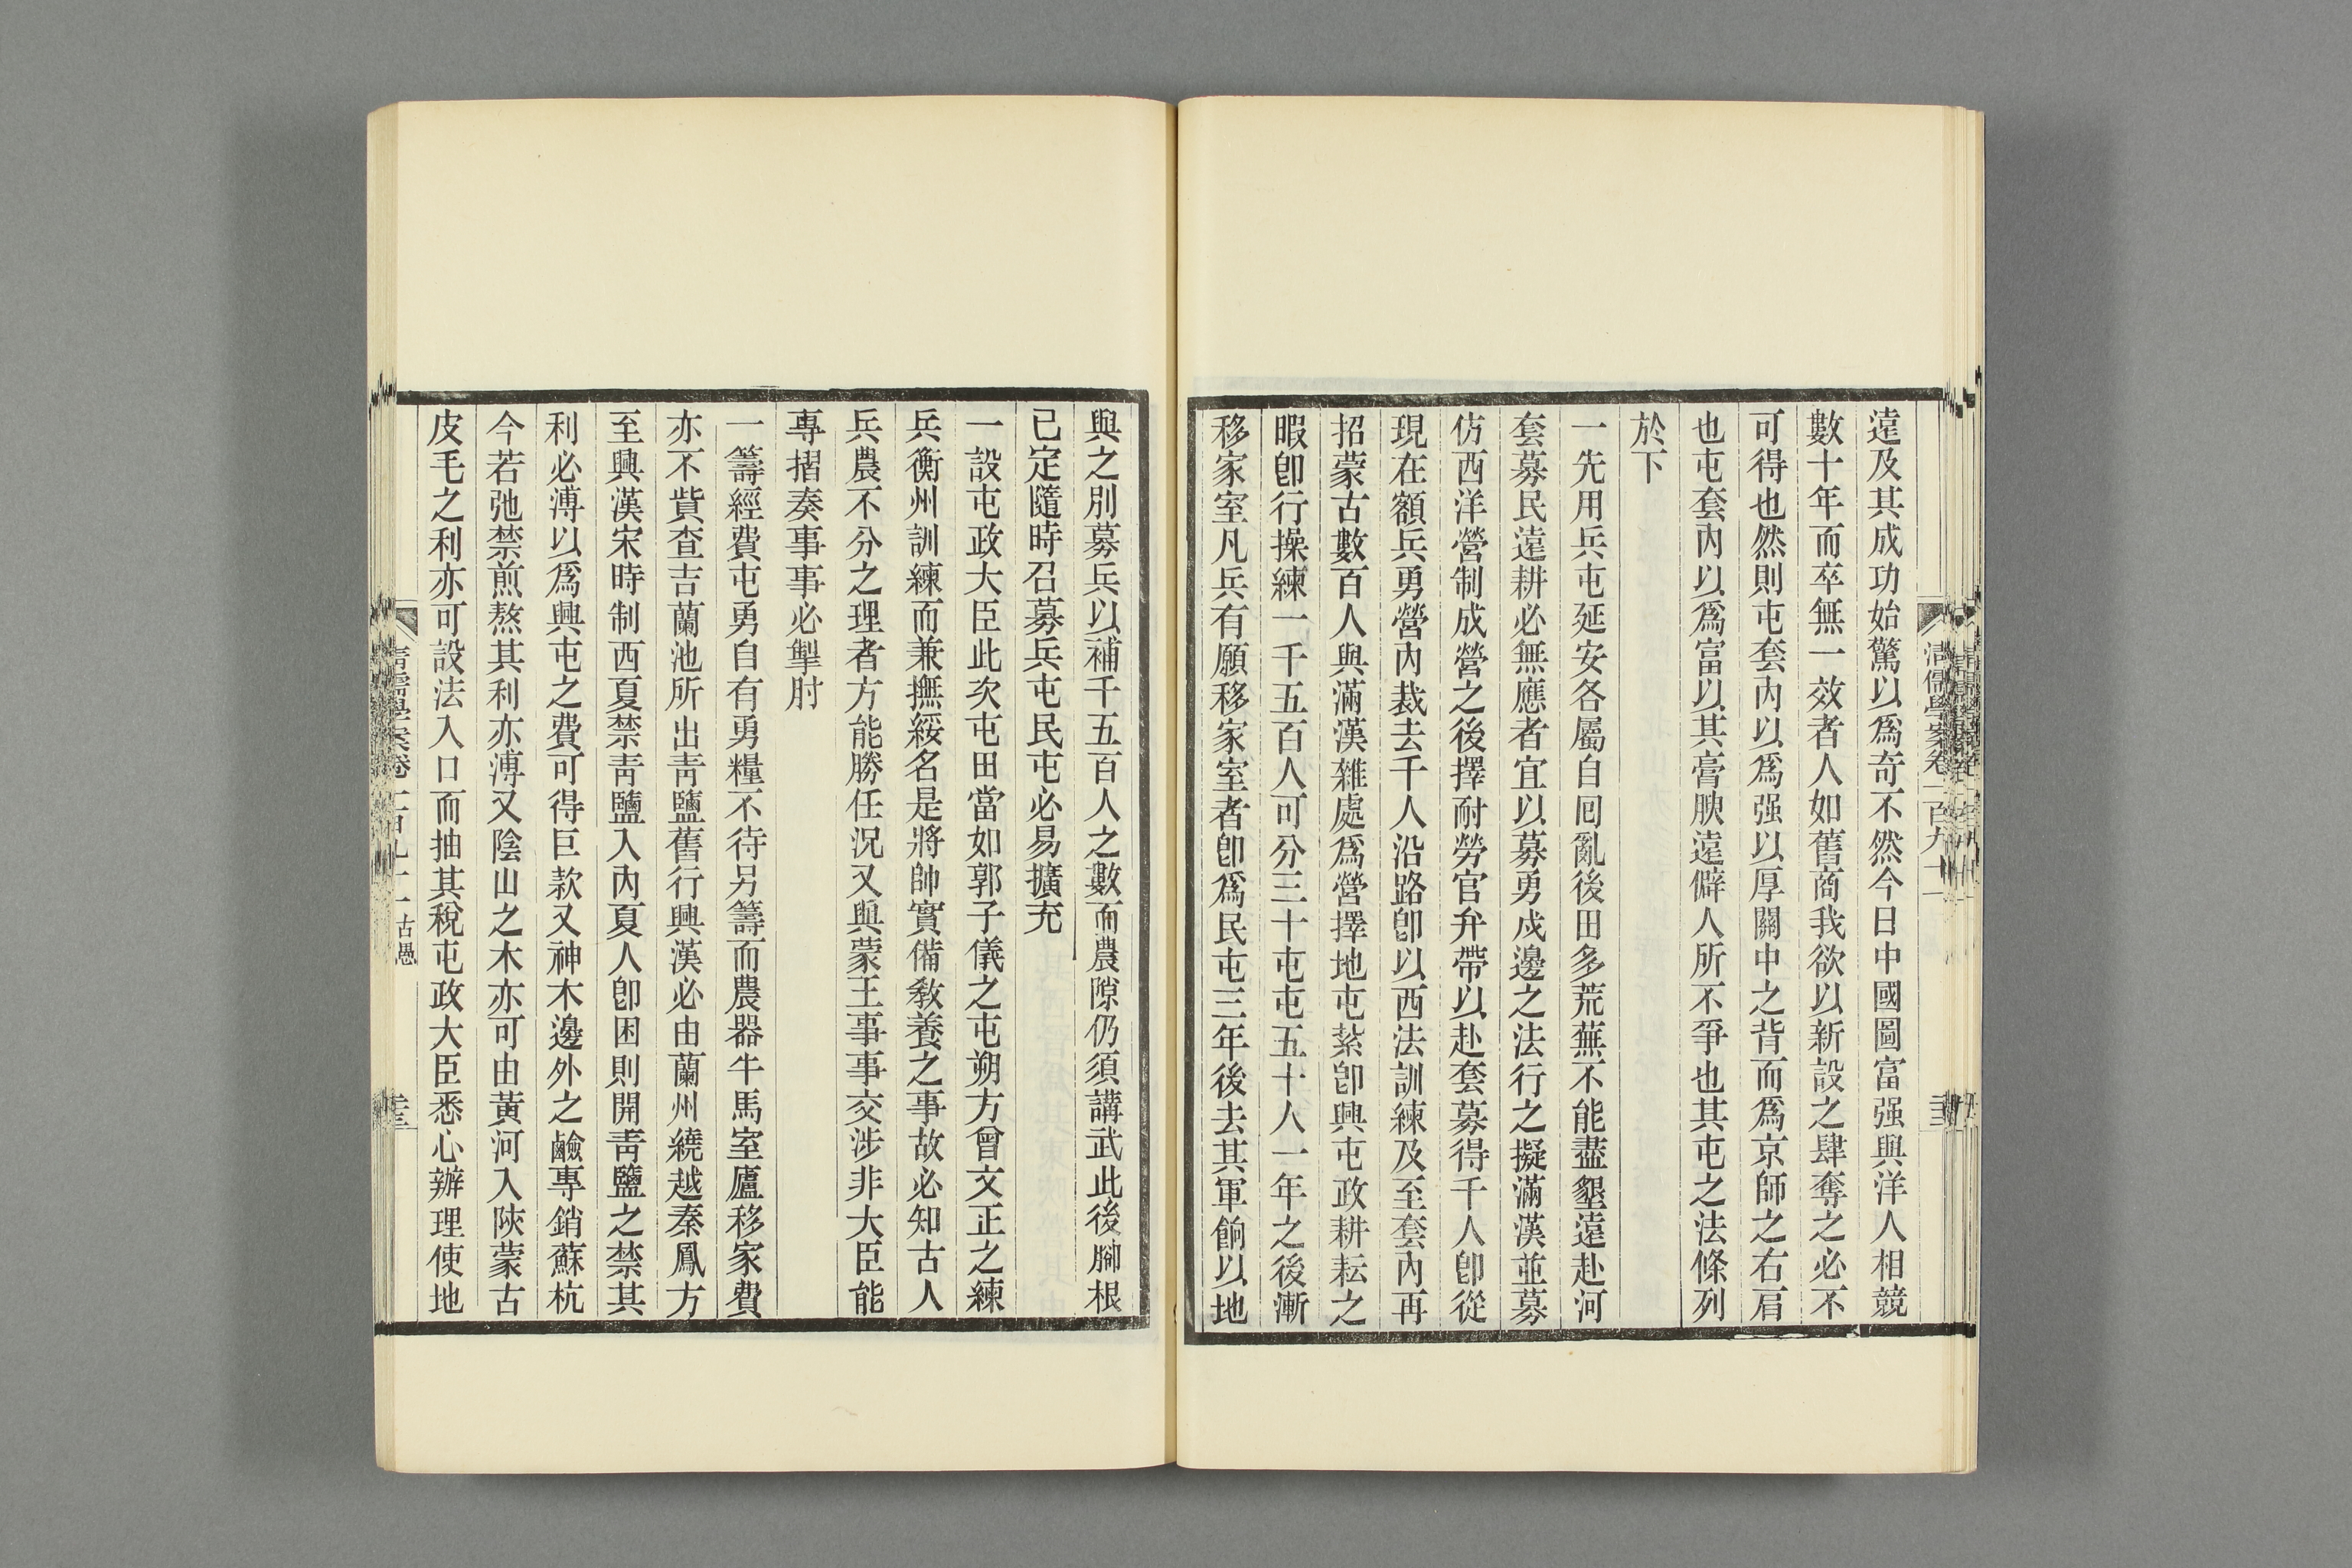 遠及其成功始驚以爲奇不然今日中國圖富强與洋人相競
數十年而卒無一效者人如舊商我欲以新設之肆奪之必不
可得也然則屯套內以爲强以厚關中之背而爲京師之右肩
也屯套內以爲富以其膏腴遠僻人所不爭也其屯之法條列
於下
一先用兵屯延安各屬自囘亂後田多荒蕪不能盡墾遠赴河
套募民遠耕必無應者宜以募勇戍邊之法行之擬滿漢並募
仿西洋營制成營之後擇耐勞官弁帶以赴套募得千人卽從
現在額兵勇營內裁去千人沿路卽以西法訓練及至套內再
招蒙古數百人與滿漢雜處爲營擇地屯紮卽興屯政耕耘之
暇卽行操練一千五百人可分三十屯屯五十人一年之後漸
移家室凡兵有願移家室者卽爲民屯三年後去其軍餉以地
與之別募兵以補千五百人之數而農隙仍須講武此後腳根
已定隨時召募兵屯民屯必易擴充
一設屯政大臣此次屯田當如郭子儀之屯朔方曾文正之練
兵衡州訓練而兼撫綏名是將帥實備教養之事故必知古人
兵農不分之理者方能勝任況又與蒙王事事交涉非大臣能
專摺奏事事必掣肘
一籌經費屯勇自有勇糧不待另籌而農器牛馬室廬移家費
亦不貲查吉蘭池所出靑鹽舊行興漢必由蘭州繞越秦鳳方
至興漢宋時制西夏禁靑鹽入內夏人卽困則開靑鹽之禁其
利必溥以爲興屯之費可得巨款又神木邊外之鹼專銷蘇杭
今若弛禁煎熬其利亦溥又陰山之木亦可由黃河入陝蒙古
皮毛之利亦可設法入口而抽其稅屯政大臣悉心辦理使地
清儒學案卷一百九十一 古愚